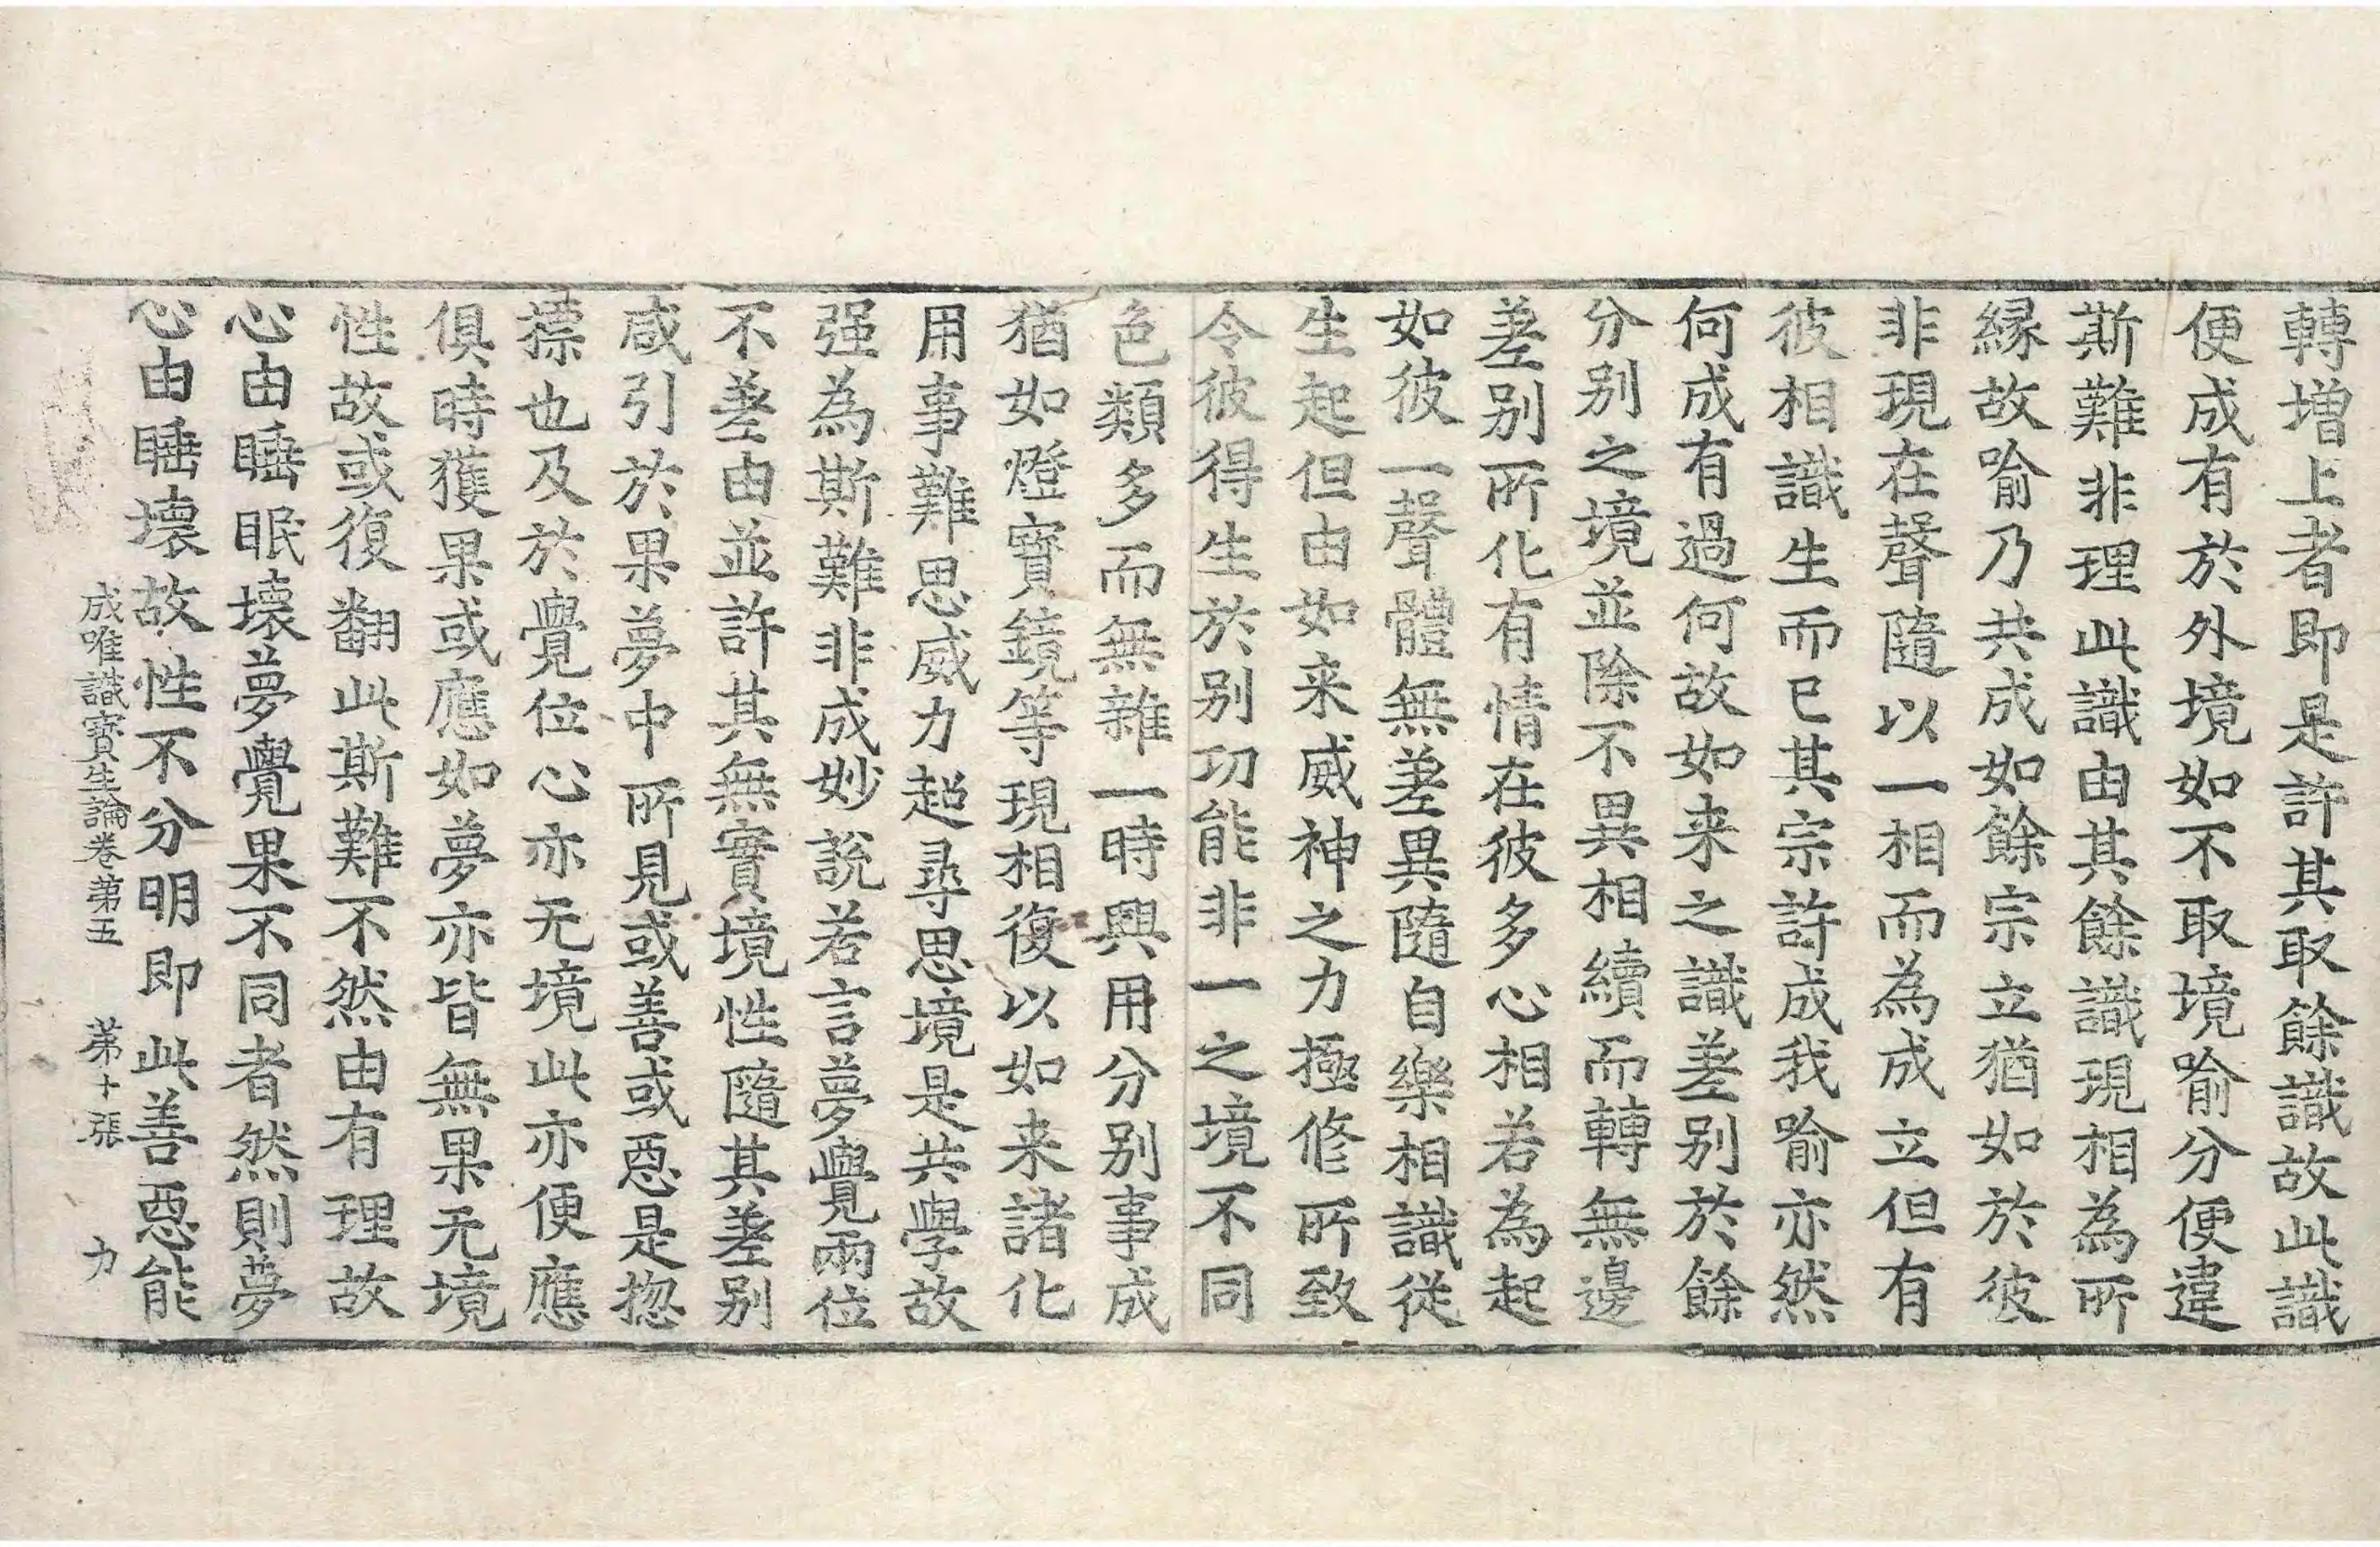 轉増上者即是許其取餘識故此識
便成有於外境如不取境喻分便違
斯難非理此識由其餘識現相為所
縁故喻乃共成如餘宗立猶如於彼
非現在聲隨以一相而為成立但有
彼相識生而已其宗許成我喻亦然
何成有過何故如来之識差别於餘
分别之境並除不異相續而轉無邊
差别所化有情在彼多心相若為起
如彼一聲體無差異隨自樂相識從
生起但由如来威神之力極修所致
令彼得生於别功能非一之境不同
色類多而無雜一時興用分别事成
猶如燈寳鏡等現相復以如来諸化
用事難思威力超尋思境是共學故
强為斯難非成妙說若言夢覺兩位
不差由並許其無實境性隨其差别
咸引於果夢中所見或善或惡是惣
摽也及於覺位心亦无境此亦便應
俱時獲果或應如夢亦皆無果无境
性故或復翻此斯難不然由有理故
心由睡眠壞夢覺果不同者然則夢
心由睡壞故性不分明即此善惡能
成唯識寳生論卷第五 第十張 力